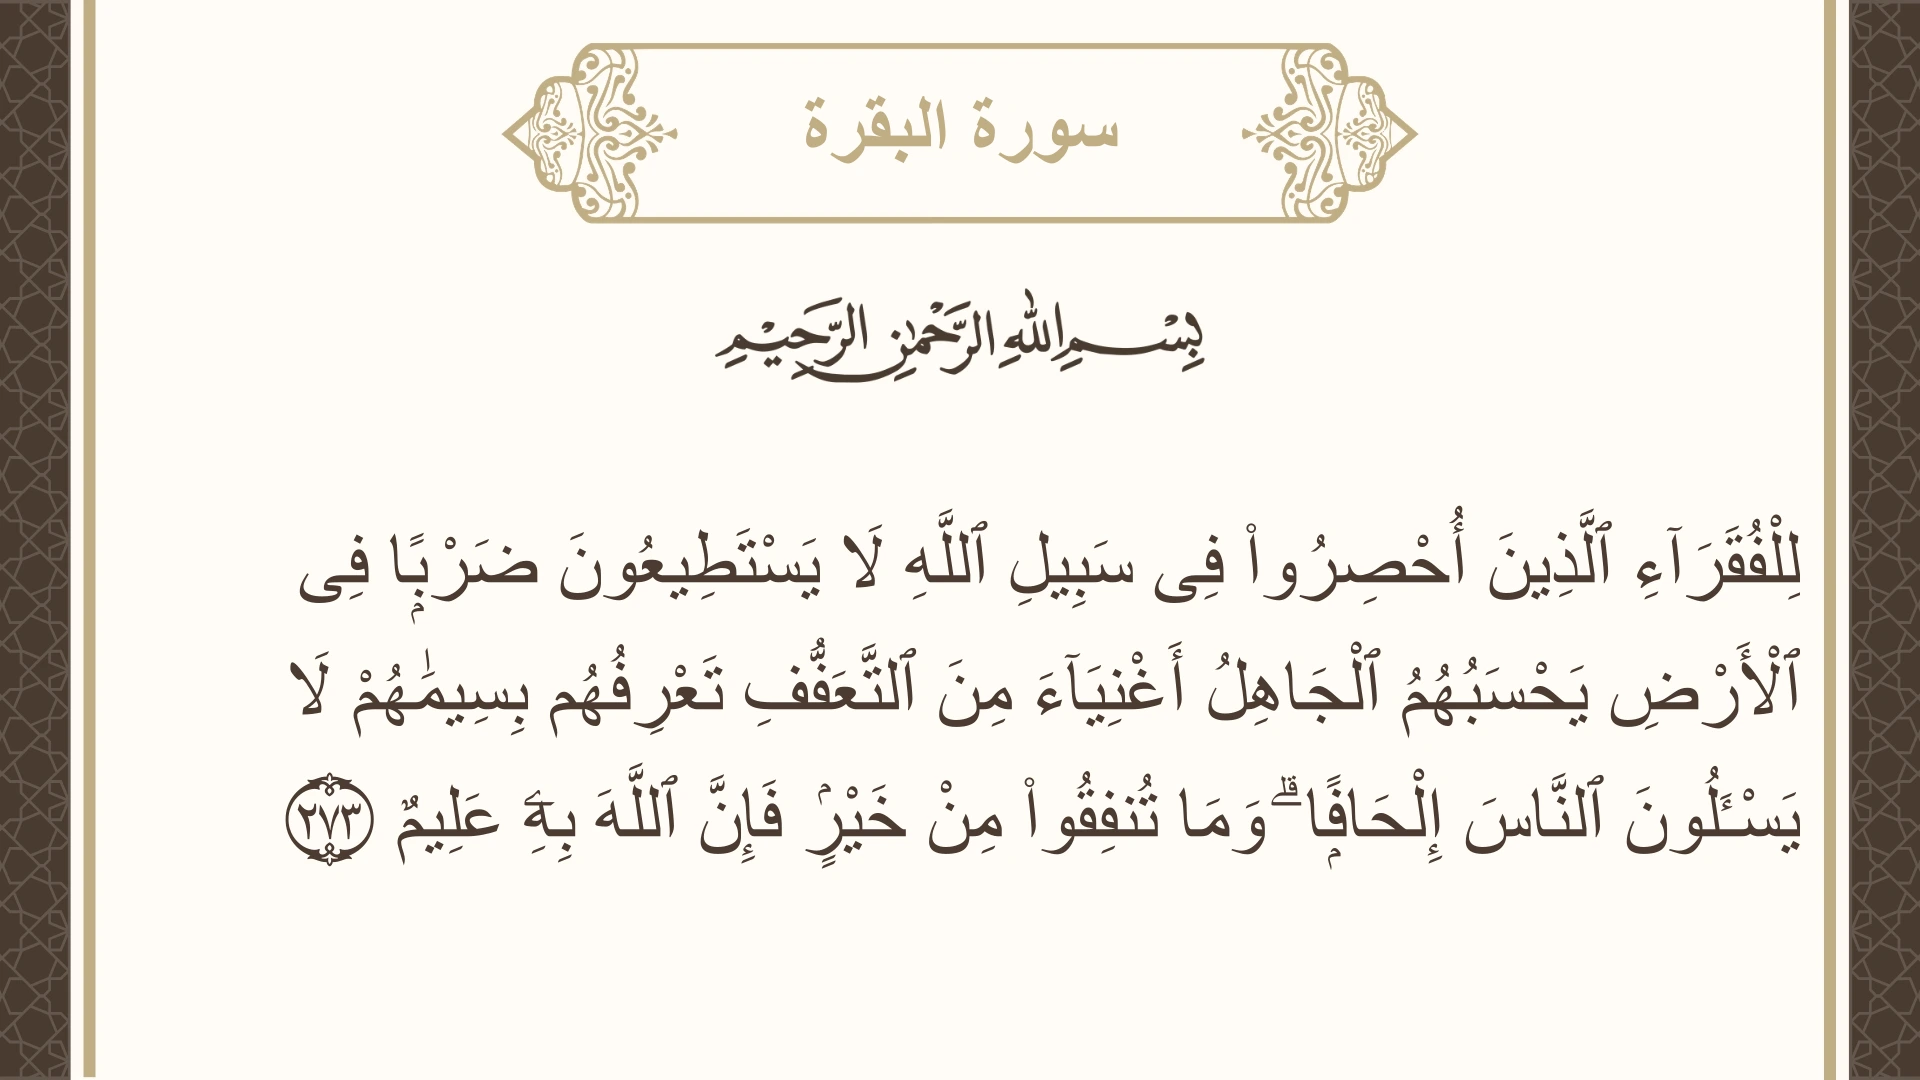 سورة البقرة
بِسْمِ اللهِ الرَّحْمٰنِ الرَّحِيْمِ
لِلْفُقَرَآءِ ٱلَّذِينَ أُحْصِرُوا۟ فِى سَبِيلِ ٱللَّهِ لَا يَسْتَطِيعُونَ ضَرْبًۭا فِى
ٱلْأَرْضِ يَحْسَبُهُمُ ٱلْجَاهِلُ أَغْنِيَآءَ مِنَ ٱلتَّعَفُّفِ تَعْرِفُهُم بِسِيمَـٰهُمْ لَا
يَسْـَٔلُونَ ٱلنَّاسَ إِلْحَافًۭا ۗ وَمَا تُنفِقُوا۟ مِنْ خَيْرٍۢ فَإِنَّ ٱللَّهَ بِهِۦ عَلِيمٌ ٢٧٣